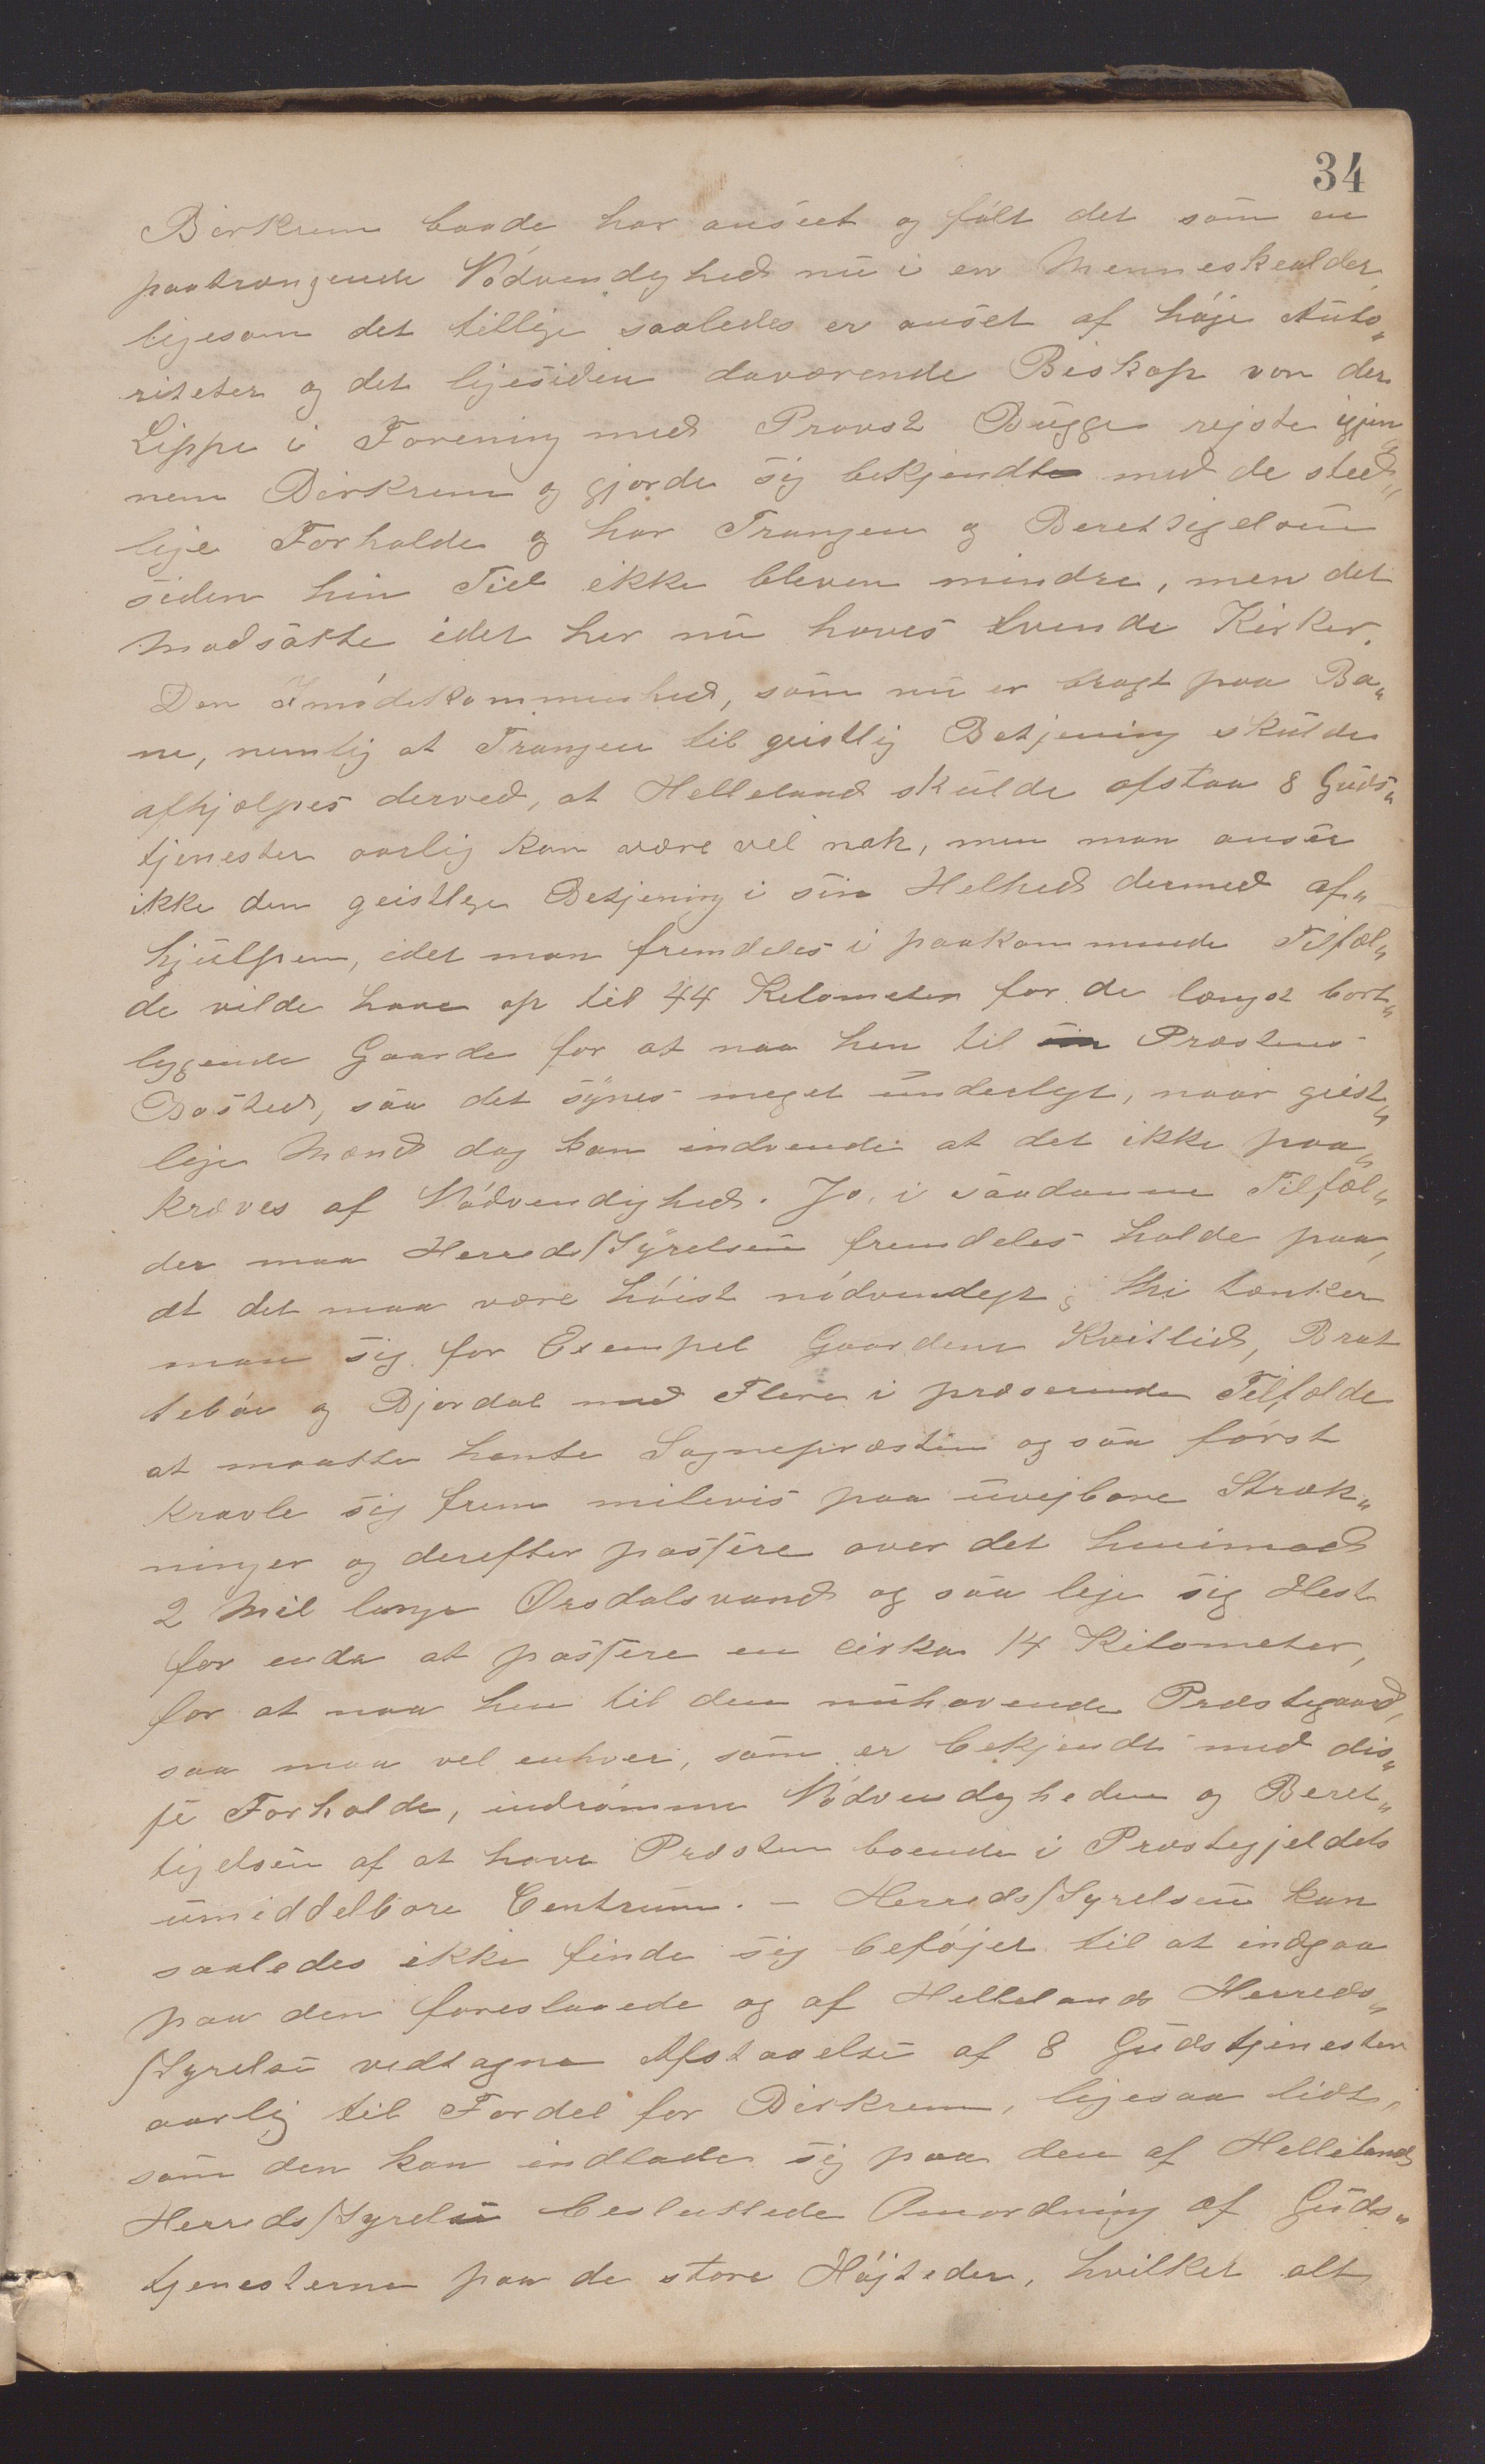 34
Birkrem baade har anseet og følt det som en
paatrængende Nødvendighed nu i en Menneskealder,
ligesom det tillige saaledes er anset af høje Auto„
riteter og det ligesiden daværende Biskop von der
Lippe i Forening med Provst Bugge rejste igjen„
nem Birkrem og gjorde sig bekjendt med de sted„
lige Forholde og har Trangen og Berettigelsen
siden hin Tid ikke bleven mindre, men det
modsatte idet her nu haves tvende Kirker.
Den Imødekommenhed, som nu er bragt paa Ba„
ne, nemlig at Trangen til geistlig Betjening skulde
afhjælpes derved, at Helleland skulde afstaa 8 Guds„
tjenester aarlig kan være vel nok, men man anser
ikke den geistlige Betjening i sin Helhed dermed af„
hjulpen, idet man fremdeles i paakommende Tilfæl„
de vilde have op til 44 Kilometer for de længst bort„
liggende Gaarde for at naa hen til Præstens
Bosted, saa det synes meget underligt, naar geist„
lige Mænd dog kan indvende at det ikke paa„
kræves af Nødvendighed. Jo, i saadanne Tilfæl„
der maa Herredsstyrelsen fremdeles holde paa,
at det maa være høist nødvendigt; thi tænker
man sig for Exempel Gaardene Kvitlid, Brat
tebøe og Bjordal med Flere i præserende Tilfælde
at maatte hente Sognepræsten og saa først
kravle sig frem milevis paa uvejbare Stræk„
ninger og derefter passere over det henimod
2 Mil lange Ørsdalsvand og saa leje sig Hest
for enda at passere en cirka 14 Kilometer,
for at naa hen til den nuhavende Præstegaard,
saa maa vel enhver, som er bekjendt med dis„
se Forholde, indrømme Nødvendigheden og Beret„
tigelsen af at have Præsten boende i Præstegjeldets
umiddelbare Centrum. – Herredsstyrelsen kan
saaledes ikke finde sig beføjet til at indgaa
paa den foreslaaede og af Hellelands Herreds„
styrelse vedtagne Afstaaelse af 8 Gudstjenester
aarlig til Fordel for Birkrem, ligesaa lidt,
som den kan indlade sig paa den af Hellelands
Herredsstyrelse besluttede Anordning af Guds„
tjenesterne paa de store Højtider, hvilket alt